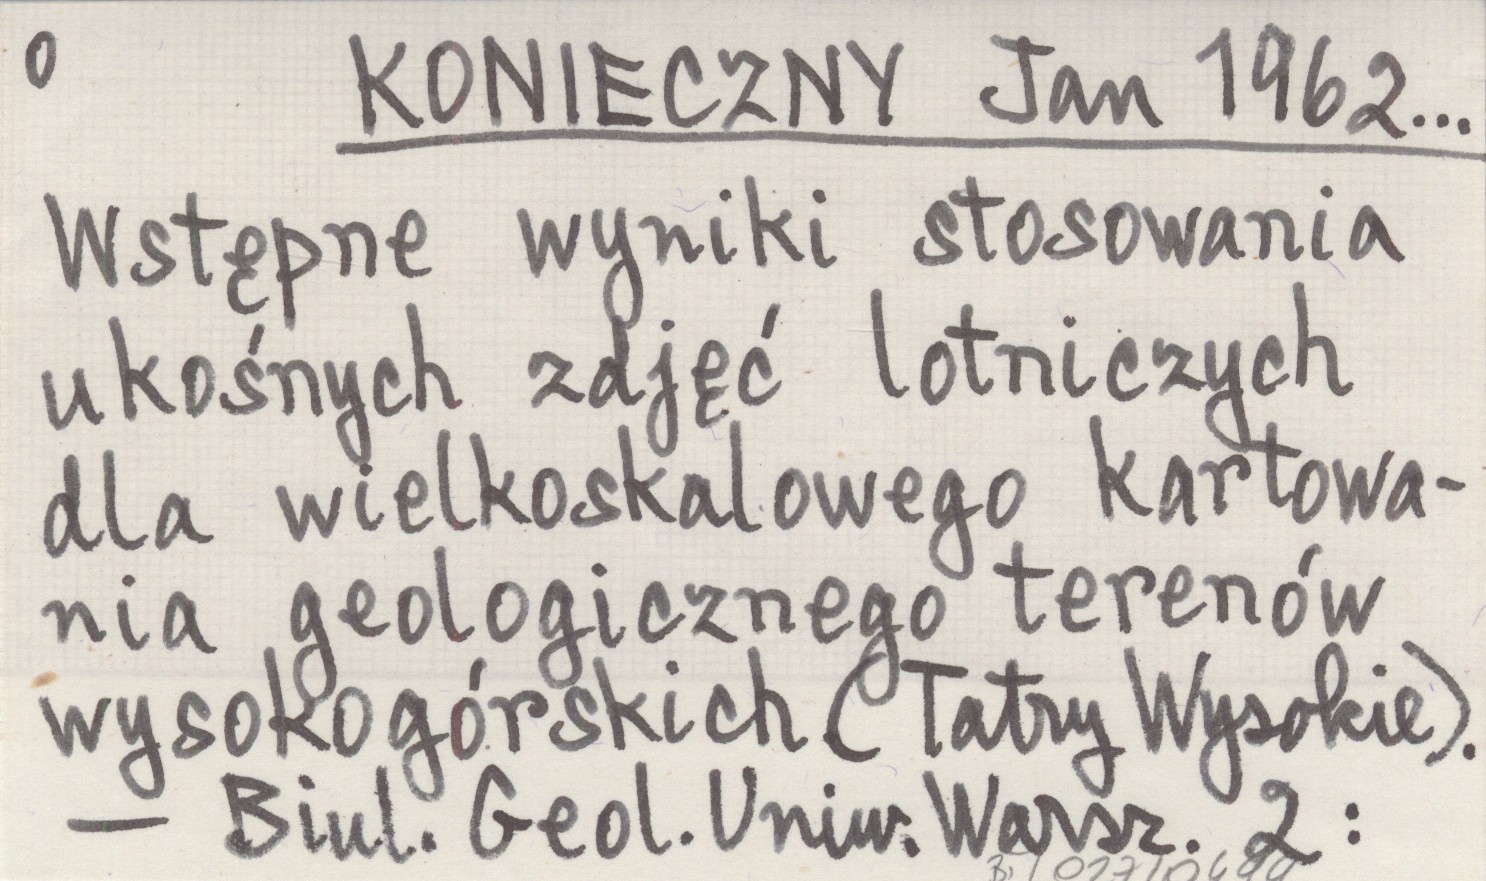 0 KONIECZNY Jan 1962...
Wstępne wyniki stosowania
ukośnych zdjęć lotniczych
dla wielkoskalowego kartowa-
nia geologicznego terenów
wysokogórskich (Tatry Wysokie).
— Biul. Geol. Uniw. Warsz. 2 :